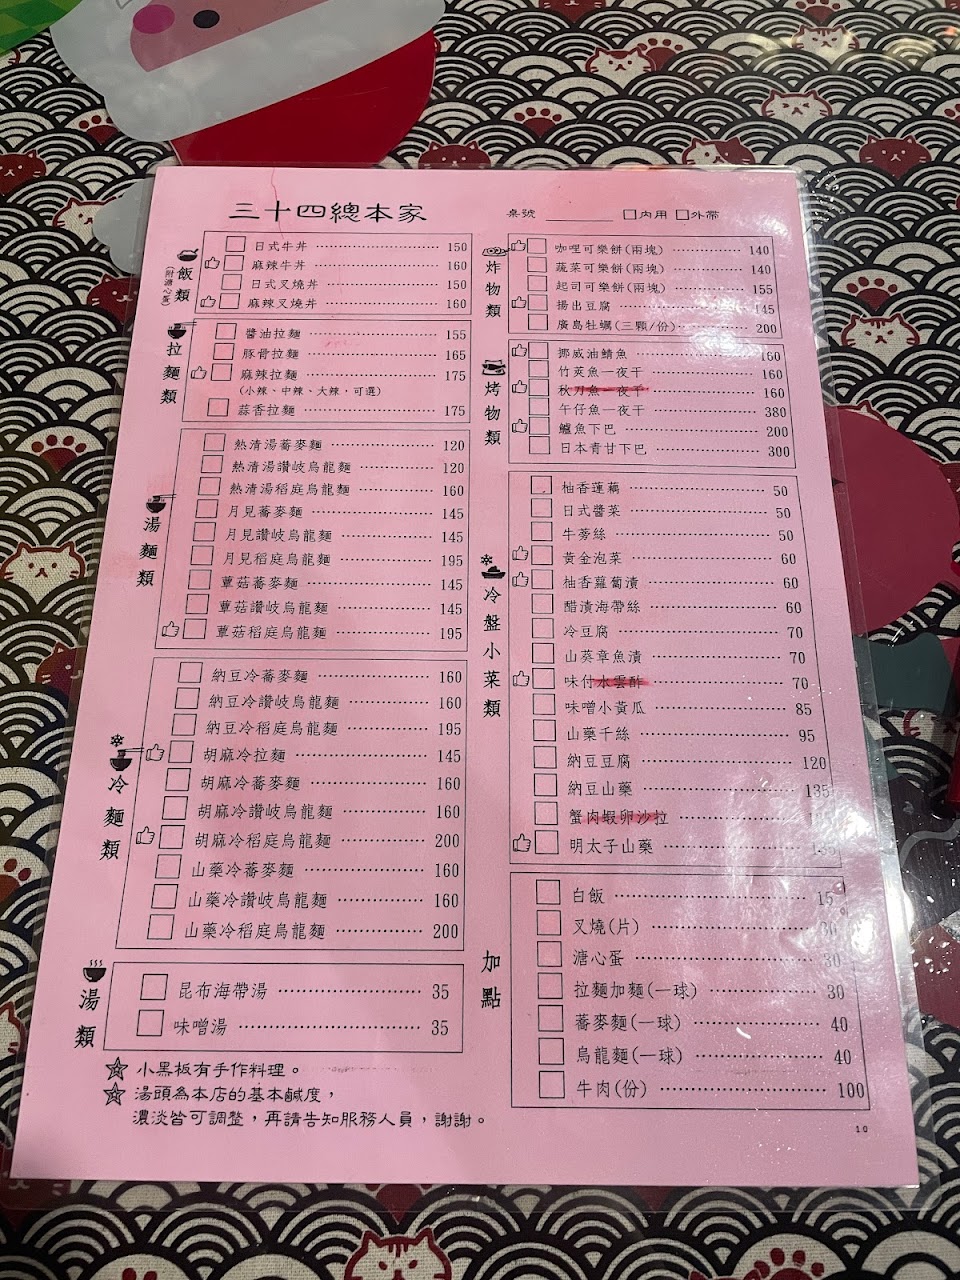 三十四總本家
桌號 ______ □內用 □外帶
飯類
日式牛丼 150
麻辣牛丼 160
日式叉燒丼 150
麻辣叉燒丼 160
拉麵類
醬油拉麵 155
豚骨拉麵 165
麻辣拉麵 175
(小辣、中辣、大辣,可選)
蒜香拉麵 175
湯麵類
熱清湯蕎麥麵 120
熱清湯讚岐烏龍麵 120
熱清湯稻庭烏龍麵 160
月見蕎麥麵 145
月見讚岐烏龍麵 145
月見稻庭烏龍麵 195
蕈菇蕎麥麵 145
蕈菇讚岐烏龍麵 145
蕈菇稻庭烏龍麵 195
冷麵類
納豆冷蕎麥麵 160
納豆冷讚岐烏龍麵 160
納豆冷稻庭烏龍麵 195
胡麻冷拉麵 145
胡麻冷蕎麥麵 160
胡麻冷讚岐烏龍麵 160
胡麻冷稻庭烏龍麵 200
山藥冷蕎麥麵 160
山藥冷讚岐烏龍麵 160
山藥冷稻庭烏龍麵 200
湯類
昆布海帶湯 35
味噌湯 35
☆ 小黑板有手作料理。
☆ 湯頭為本店的基本鹹度,
濃淡皆可調整,再請告知服務人員,謝謝。
炸物類
咖哩可樂餅(兩塊) 140
蔬菜可樂餅(兩塊) 140
起司可樂餅(兩塊) 155
揚出豆腐 145
廣島牡蠣(三顆/份) 200
烤物類
挪威油鯖魚 160
竹莢魚一夜干 160
秋刀魚一夜干 160
午仔魚一夜干 380
鱸魚下巴 200
日本青甘下巴 300
冷盤小菜類
柚香蓮藕 50
日式醬菜 50
牛蒡絲 50
黃金泡菜 60
柚香蘿蔔漬 60
醋漬海帶絲 60
冷豆腐 70
山葵章魚漬 70
味付水雲酢 70
味噌小黃瓜 85
山藥千絲 95
納豆豆腐 120
納豆山藥 135
蟹肉蝦卵沙拉
明太子山藥
加點
白飯 15
叉燒(片)
溏心蛋 30
拉麵加麵(一球) 30
蕎麥麵(一球) 40
烏龍麵(一球) 40
牛肉(份) 100
10